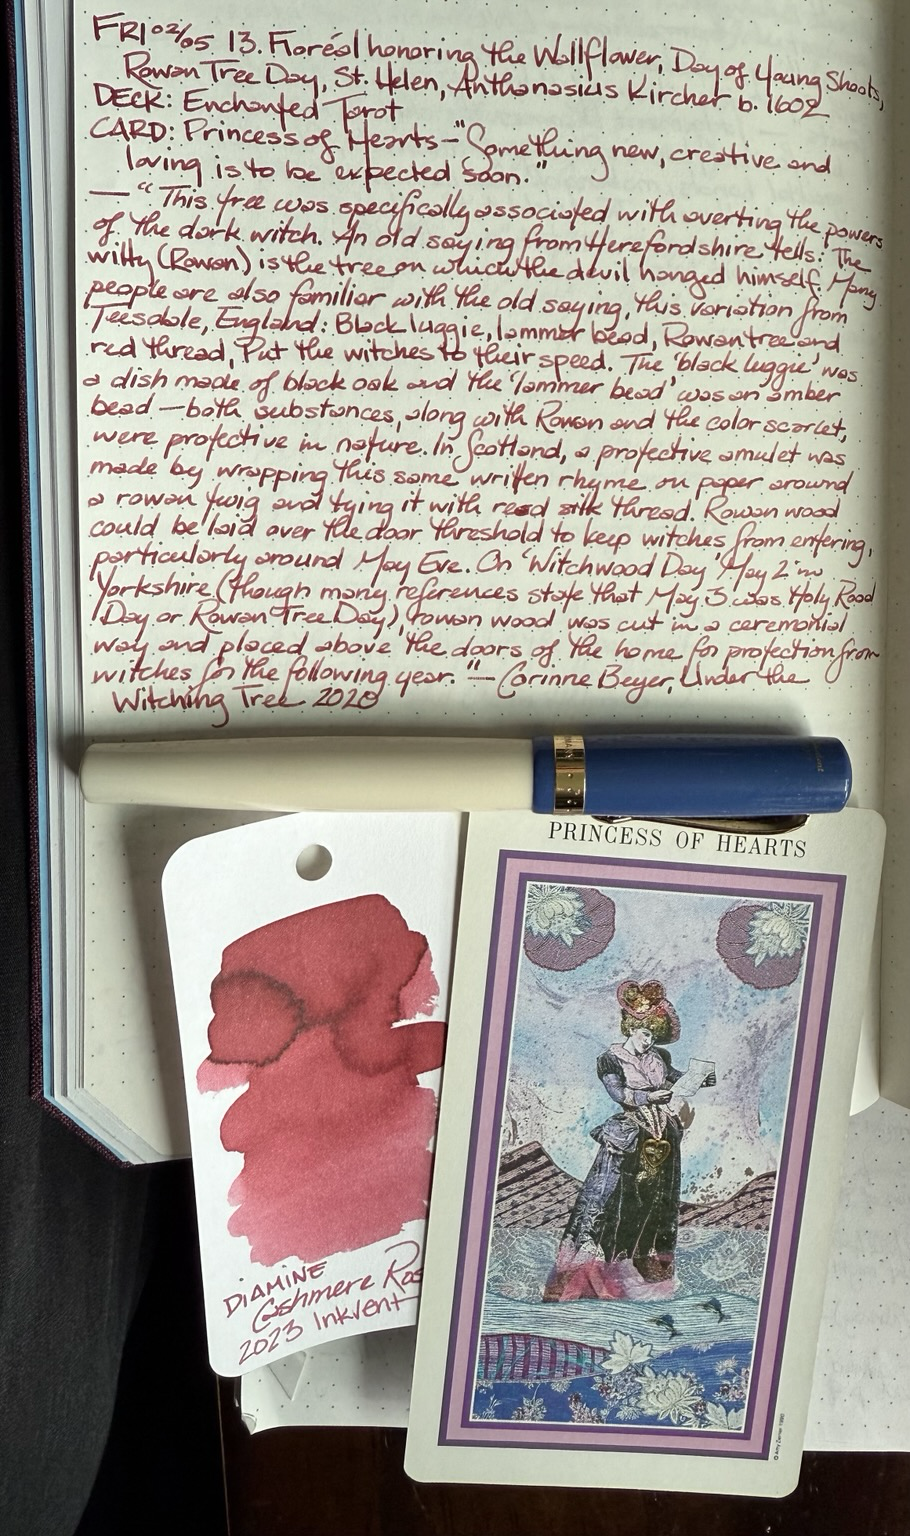 FRI 02/05 13. Floréal honoring the Wallflower, Day of Young Shoots,
Rowan Tree Day, St. Helen, Anthanasius Kircher b. 1602
DECK: Enchanted Tarot
CARD: Princess of Hearts – "Something new, creative and
loving is to be expected soon."
— "This tree was specifically associated with averting the powers
of the dark witch. An old saying from Herefordshire tells: The
witty (Rowan) is the tree on which the devil hanged himself. Many
people are also familiar with the old saying, this variation from
Teesdale, England: Black luggie, lammer bead, Rowan tree and
red thread, Put the witches to their speed. The 'black luggie' was
a dish made of black oak and the 'lammer bead' was an amber
bead — both substances, along with Rowan and the color scarlet,
were protective in nature. In Scotland, a protective amulet was
made by wrapping this same written rhyme on paper around
a rowan twig and tying it with red silk thread. Rowan wood
could be laid over the door threshold to keep witches from entering,
particularly around May Eve. On 'Witchwood Day' May 2 in
Yorkshire (though many references state that May 3 was Holy Rood
Day or Rowan Tree Day), rowan wood was cut in a ceremonial
way and placed above the doors of the home for protection from
witches for the following year." — Corinne Beyer, Under the
Witching Tree 2020
PRINCESS OF HEARTS
DIAMINE
Cashmere Ros
2023 Inkvent
© Amy Zerner 1990